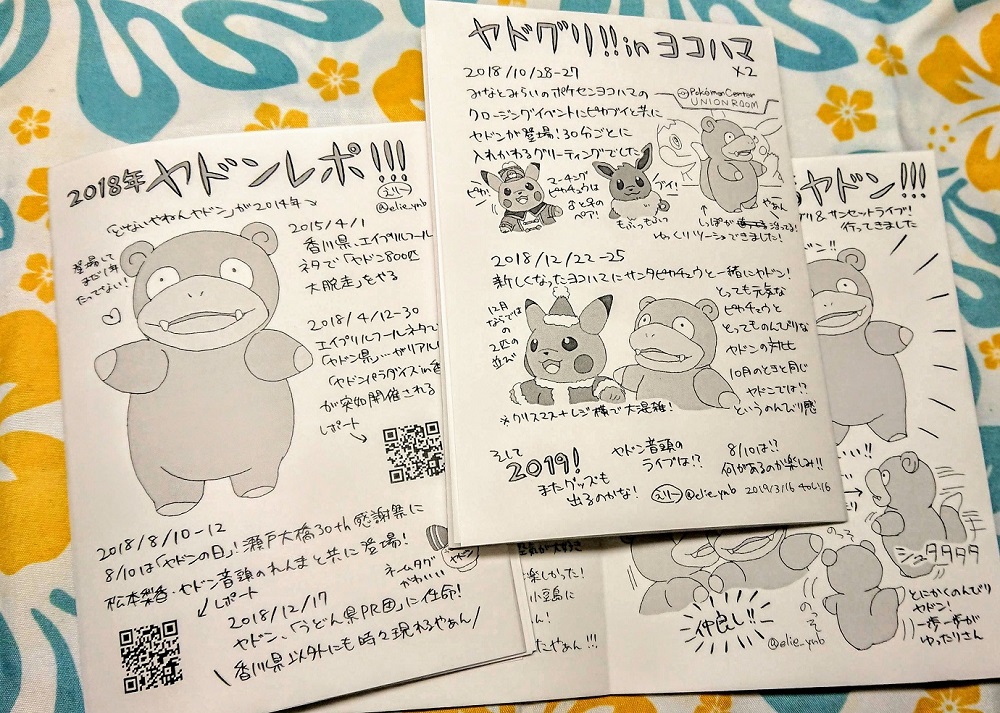 2018年ヤドンレポ!!!
えりー
@elie_ynb
「どないやねんヤドン」が2014年
登場して
まだ1年
たってない!
2015/4/1
香川県、エイプリルフール
ネタで「ヤドン800匹
大脱走」をやる
2018/4/12-30
エイプリルフールネタで
「ヤドン県…がリアル
「ヤドンパラダイスin香
が突如開催される
レポート
2018/8/10-12
8/10は「ヤドンの日」!瀬戸大橋30th感謝祭に
松本梨香・ヤドン音頭のれんまと共に登場!
レポート
ネームタグ
かわいい
ヤドン
2018/12/17
ヤドン、「うどん県PR団」に任命!
香川県以外にも時々現れるやぁん
ヤドグリ!!inヨコハマ
x2
2018/10/28-29
みなとみらいのポケセンヨコハマの
クロージングイベントにピカブイと共に
ヤドンが登場!30分ごとに
入れかわるグリーティングでした
Pokémon Center
UNION ROOM
ピカ!
マーチング
ピカチュウは
♂と♀の
ペア!
ブイ!
もふっもふっ
やぁん
しっぽが
ゆっくりツーショできました!
2018/12/22-25
新しくなったヨコハマにサンタピカチュウと一緒にヤドン!
12月
ならでは
の
2匹の
並び
とっても元気な
ピカチュウと
とってものんびりな
ヤドンの対比
10月のときと同じ
ヤドンでは!?
というのんびり感
※クリスマス+レジ横で大混雑!
そして
2019!
またグッズも
出るのかな!
ヤドン音頭の
ライブは!?
8/10は!?
何があるのか楽しみ!!
えりー @elie_ynb 2019/3/16
ヤドン!!!
グリ&サンセットライブ!
行ってきました
ン!!
いい!!
シュタタタタ
のそっ
のっそ
とにかくのんびり
ヤドン!
一歩一歩が
ゆったりさん
仲良し!!
@elie_ynb
楽しかった!
小豆島に
ん!
たやぁん!!!